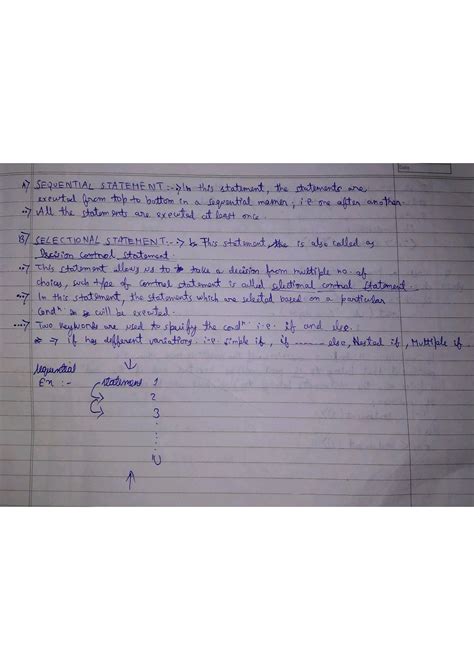 A) SEQUENTIAL STATEMENT :-> In this statement, the statements are
executed from top to bottom in a sequential manner, i.e. one after another.
All the statements are executed at least once.
B) SELECTIONAL STATEMENT :-> This statement, the is also called as
Decision control statement.
This statement allows us to take a decision from multiple no. of
choices, such type of control statement is called selectional control statement.
In this statement, the statements which are selected based on a particular
condⁿ will be executed.
Two keywords are used to specify the condⁿ i.e. if and else.
* => if has different variations i.e. simple if, if ------ else, Nested if, Multiple if
Sequential
Ex :- statement 1
2
3